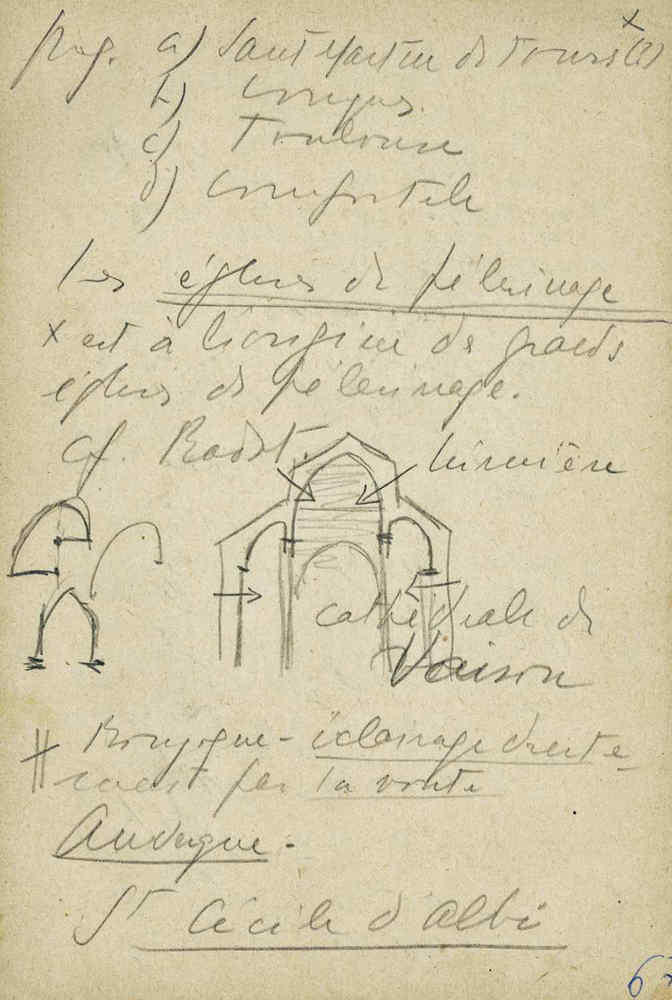 x
prog. a) Saint Martin de Tours (?)
b) Conques.
c) Toulouse
d) Compostele
Les églises de pélerinage
x est à l'origine des grands
églises de pélerinage.
cf. lumière
cathédrale de
Vaison
# Bourgogne - éclairage directe
par la voute
Auvergne -
St Cécile d'Albi